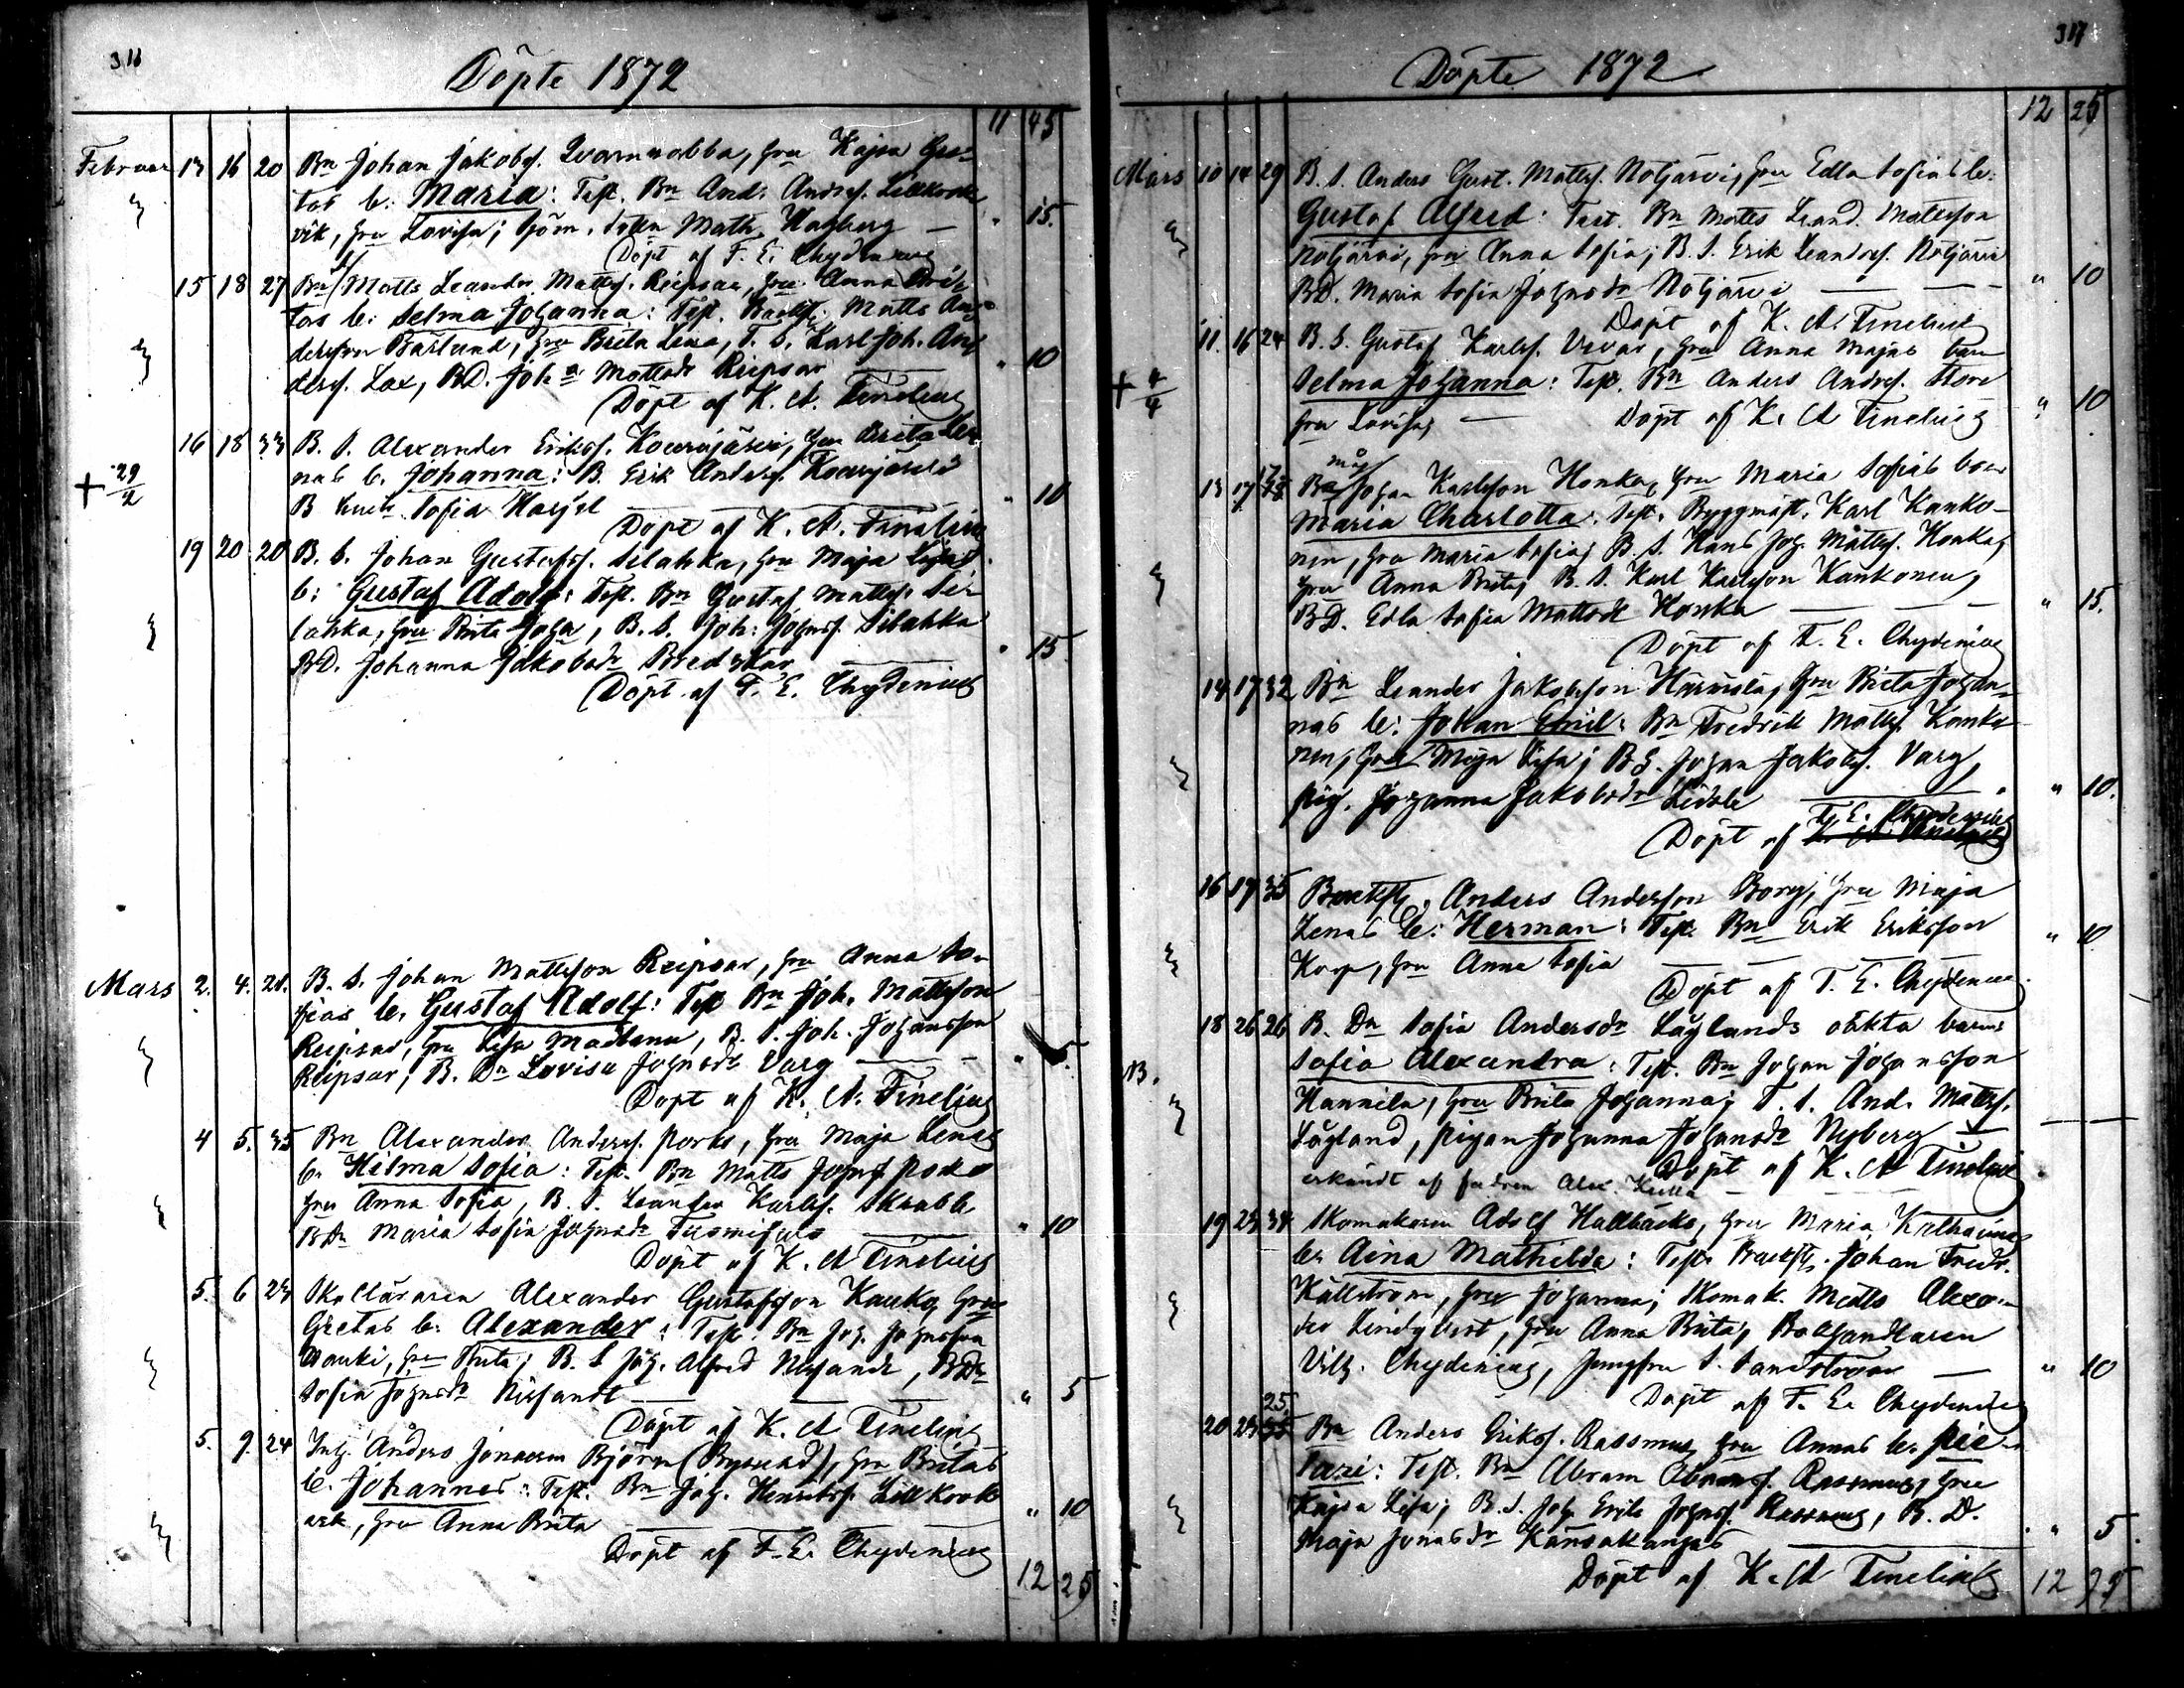 311
Döpte 1872
11 45
Februar 13 16 20 Bn Johan Jakobss. Qvarnnabba, hru Kajsa Gre-
tas b: Maria: Test. Bn And. Anderss. Lillkrok
vik, hru Lovisa; Math. Hagberg — " 15.
Döpt af F. E. Chydenius
15 18 27 Bn Matts Leander Mattss. Reipsar, hru Anna Bri-
tas b: Selma Johanna: Test. Matts An-
dersson Barlund, hru Brita Lena, T. S. Karl Joh. An-
derss. Lax, BD. Joha Mattsdr Reipsar " 10
Döpt af K. A. Finelius
16 18 33 B. S. Alexander Erikss. hru Brita Le-
+ 29/2 nas b. Johanna: B. Erik Anderss.
B Sofia " 10
Döpt af K. A. Finelius
19 20 20 B. S. Johan Gustafss. Silahka, hru Maja Lisas
b: Gustaf Adolf: Test. Bn Gustaf Mattss. Si-
lahka, hru Brita Joha, B. S. Joh: Johnss. Silahka
BD. Johanna Jakobsdr Bredskär " 15.
Döpt af F. E. Chydenius
Mars 2. 4. 21. B. S. Johan Mattsson Reipsar, hru Anna So-
fias b. Gustaf Adolf: Test Bn Joh. Mattsson
Reipsar, hru Lisa B. S. Joh. Johansson
Reipsar, B. Dn Lovisa Johnsdr Varg — " 5.
Döpt af K. A. Finelius
4 5. 35 Bn Alexander Anderss. Porko, hru Maja Lenas
b. Hilma Sofia: Test. Bn Matts Johnss Porko
hru Anna Sofia, B. S. Leander Karlss. Skrabb,
B Dn Maria Sofia Johnsdr " 10
Döpt af K. A Finelius
5. 6 23 Alexander Gustafsson Kauko, hru
Gretas b. Alexander: Test. Bn Joh. Johnsson
hru Brita; B. S Joh. Alfred Nisfandt, BDn
Sofia Johnsdr Nisfandt — " 5
Döpt af K. A Finelius
5. 9. 24 Inh. Anders Jonasson Björn (Byskad), hru Britas
b. Johannes: Test. Bn Joh. Henrikss. Lillkrok
vik, hru Anna Brita " 10
Döpt af F. E. Chydenius
12 25
317
Döpte 1872
12 25
Mars 10 14 29 B. S. Anders Gust. Mattss. Nötjärvi, hru Edla Sofias b:
Gustaf Alfred: Test. Bn Matts Leand. Mattsson
Nötjärvi, hru Anna Sofia; B. S. Erik Leanderss. Nötjärvi
BD. Maria Sofia Johnsdr Nötjärvi — " 10
Döpt af K. A. Finelius
11. 16 24 B. S. Gustaf Karlss. hru Anna Majas barn
+ 4/4 Selma Johanna: Test. Bn Anders Anderss. Store
hru Lovisa, — Döpt af K. A Finelius " 10
13 17 Johan Karlsson Honka, hru Maria Sofias barn
Maria Charlotta: Test. Byggmäst. Karl Kanko-
nen, hru Maria Sofia; B. S. Hans Joh. Mattss. Honka,
hru Anna Brita, B. S. Karl Karlsson Kankonen,
BD. Edla Sofia Mattsdr Honka — " 15.
Döpt af F. E. Chydenius
14 17 32 Bn Leander Jakobsson Härmälä, hru Brita Johan-
nas b: Johan Emil: Bn Fredrik Mattss. Kanko-
nen, hru Maja Lisa; BS. Johan Jakobss. Varg,
pig. Johanna Jakobsdr — " 10.
F. E. Chydenius
Döpt af K. A. Finelius
16 17 35 Backst. Anders Andersson Borg, hru Maja
Lenas b: Herman: Test. Bn Erik Eriksson
Korp, hru Anna Sofia " 10
Döpt af F. E. Chydenius.
18 26 26 B. Dn Sofia Andersdr Låglands oäkta barn
B. Sofia Alexandra: Test. Bn Johan Johansson
Hannila, hru Brita Johanna; T. S. And. Mattss.
Lågland, pigan Johanna Johansdr Nyberg —
Döpt af K. A Finelius
erkändt af fadren Alex.
19 23 34 Skomakaren Adolf Hallbäcks, hru Maria Katharinas
b. Aina Mathilda: Test. Backst. Johan Fredr.
Källström, hru Johanna; Skomak. Matts Alexan-
der Lindqvist, hru Anna Brita, Bokhandlaren
Vilh. Chydenius, Jungfru S. Sandström — " 10
Döpt af F. E. Chydenius
25.
20 23 35 Bn Anders Erikss. Rassmus, hru Annas b. Pie-
tari: Test. Bn Abram Abramss. Rassmus, hru
Kajsa Lisa; B. S. Joh. Erik Johnss. Rassmus, B. D.
Maja Jonasdr Känsäkangas — " 5.
Döpt af K. A Finelius
12 95